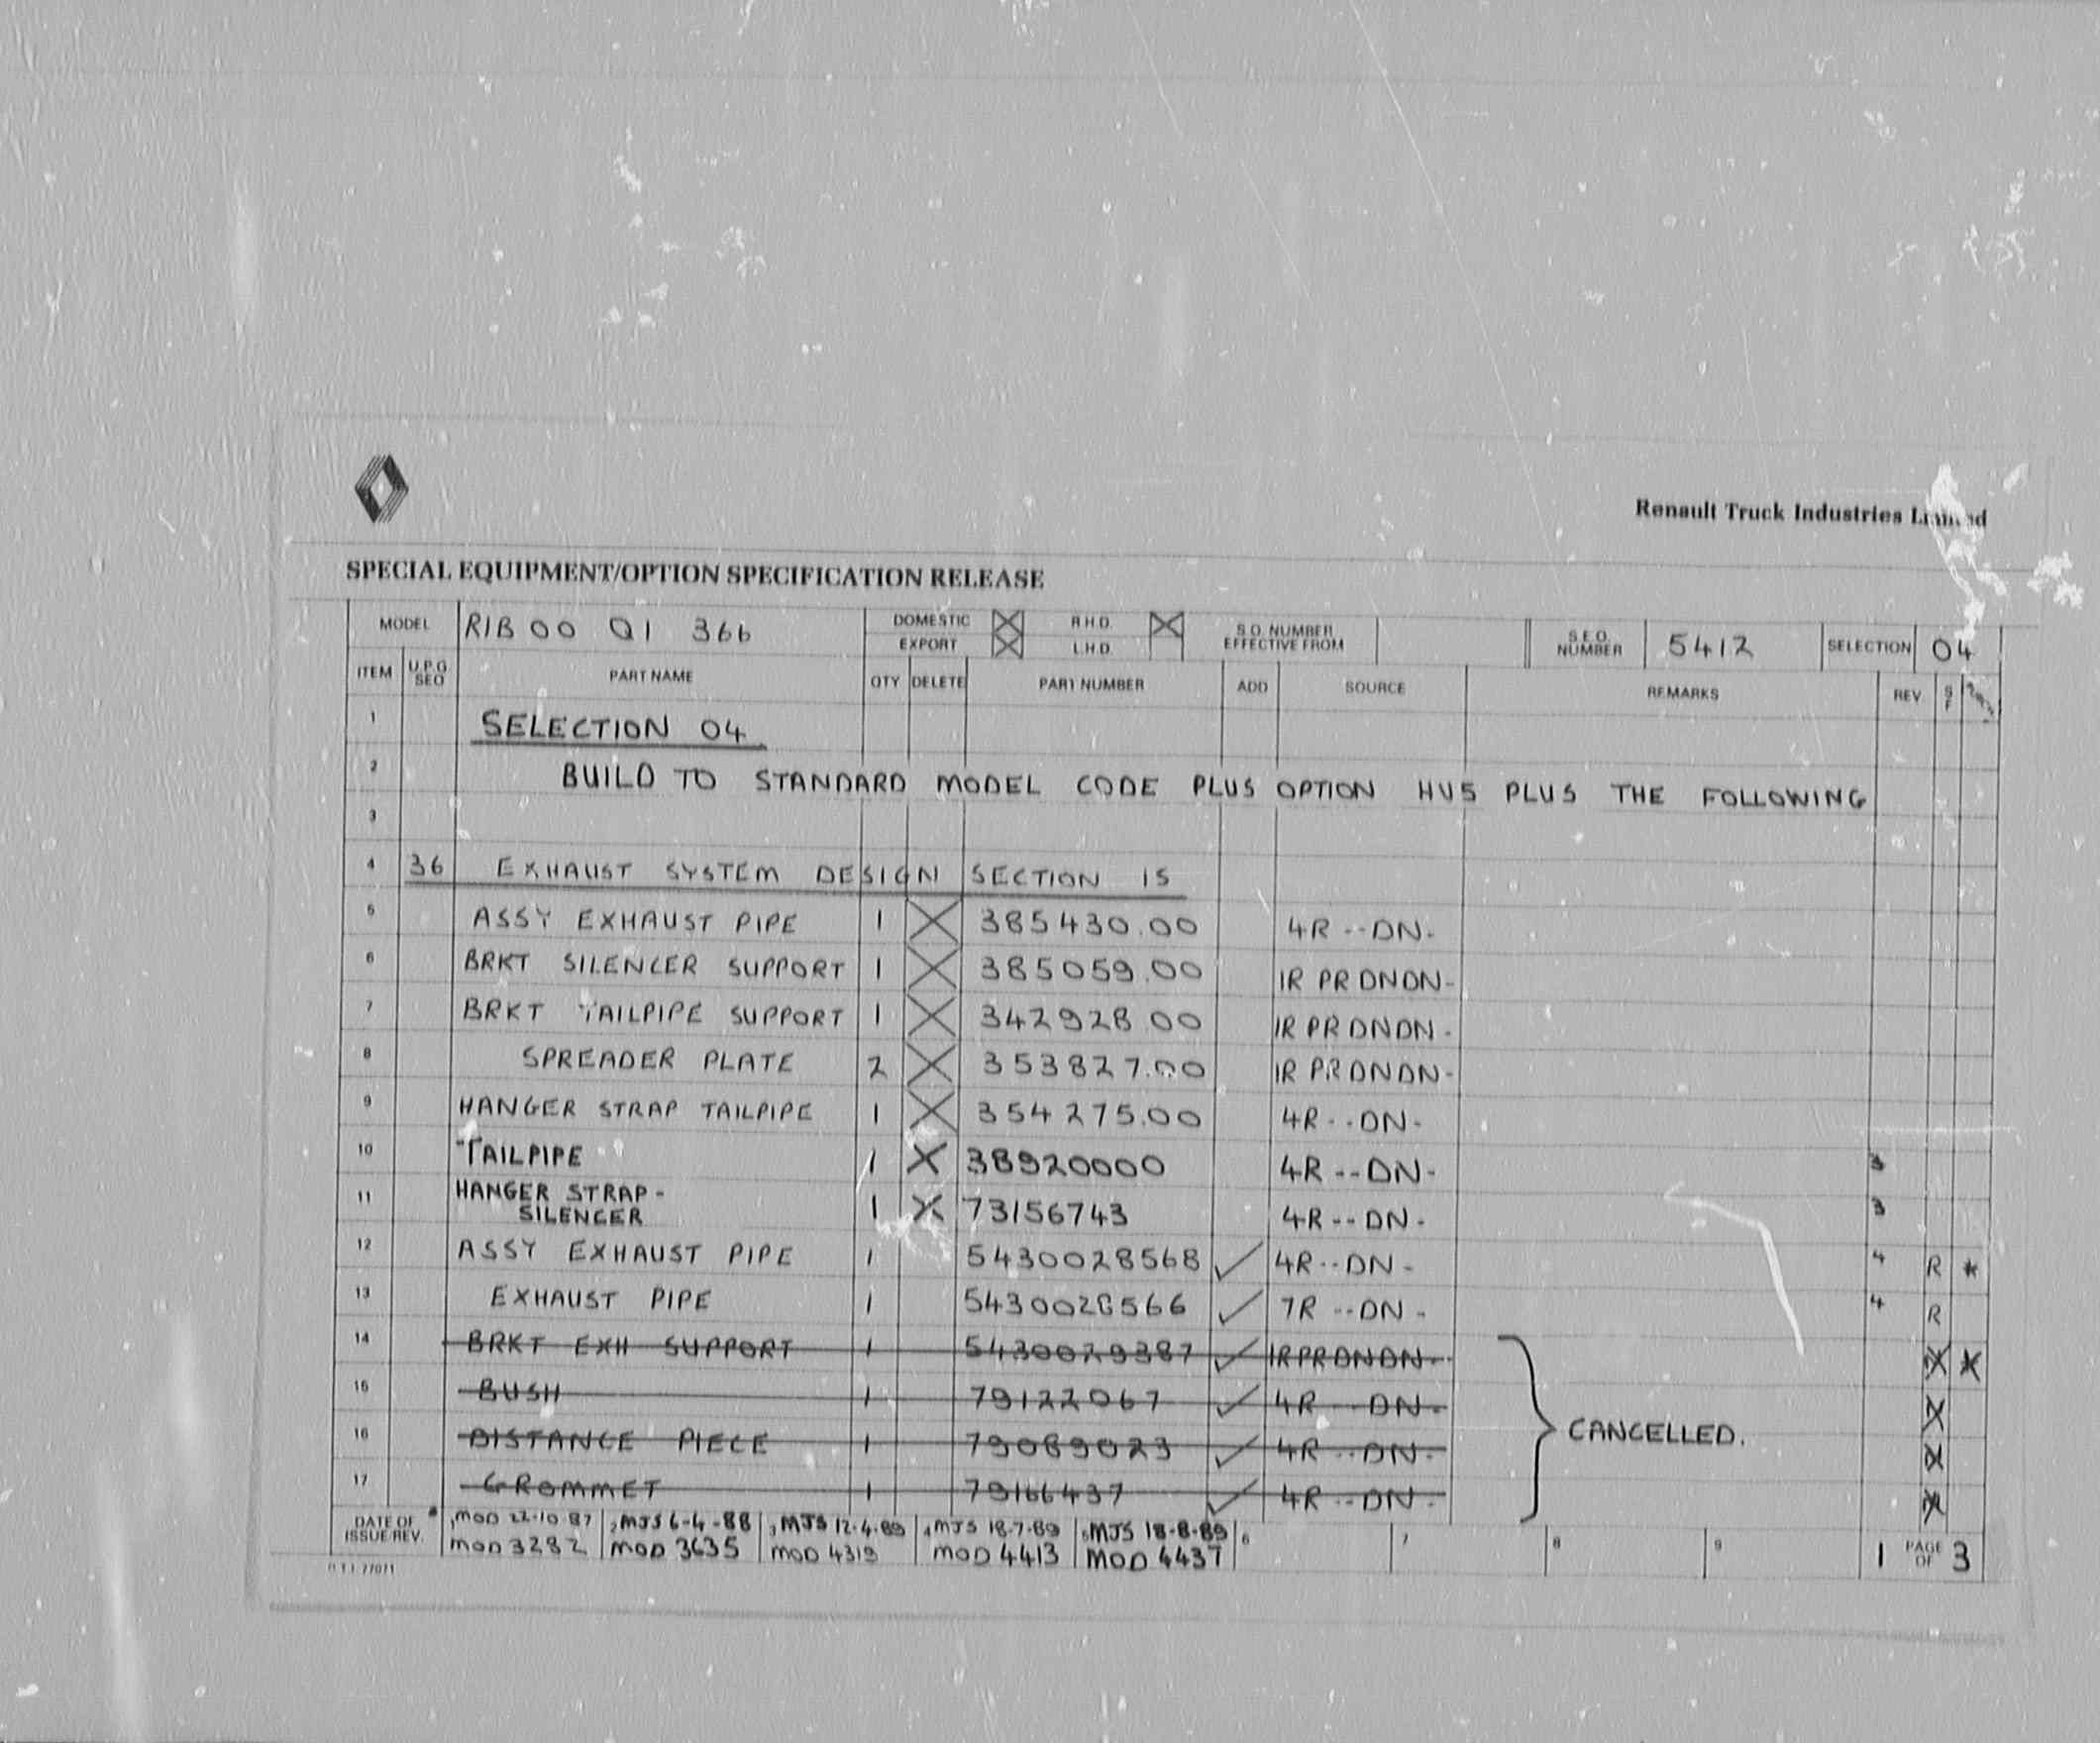 Renault Truck Industries
SPECIAL EQUIPMENT/OPTION SPECIFICATION RELEASE
MODEL R1B00 Q1 366 DOMESTIC X R.H.D. X S.O. NUMBER EFFECTIVE FROM S.E.O. NUMBER 5412 SELECTION 04
EXPORT X L.H.D.
ITEM U.P.G SEQ PART NAME QTY DELETE PART NUMBER ADD SOURCE REMARKS REV
1 SELECTION 04
2 BUILD TO STANDARD MODEL CODE PLUS OPTION HU5 PLUS THE FOLLOWING
3
4 36 EXHAUST SYSTEM DESIGN SECTION 15
5 ASSY EXHAUST PIPE 1 X 385430.00 4R--DN-
6 BRKT SILENCER SUPPORT 1 X 385059.00 1R PRDNDN-
7 BRKT TAILPIPE SUPPORT 1 X 342928.00 1R PRDNDN-
8 SPREADER PLATE 2 X 353827.00 1R PRDNDN-
9 HANGER STRAP TAILPIPE 1 X 354275.00 4R--DN-
10 TAILPIPE 1 X 38920000 4R--DN- 3
11 HANGER STRAP-
SILENCER 1 X 73156743 4R--DN- 3
12 ASSY EXHAUST PIPE 1 5430028568 ✓ 4R--DN- 4 R *
13 EXHAUST PIPE 1 5430028566 ✓ 7R--DN- 4 R
14 BRKT EXH SUPPORT 1 5430029387 ✓ 1RPRDNDN- X *
15 BUSH 1 79122067 ✓ 4R--DN- X
CANCELLED.
16 DISTANCE PIECE 1 79089023 ✓ 4R--DN- X
17 GROMMET 1 79166437 ✓ 4R--DN- X
DATE OF ISSUE REV. 1 MOD 22-10-87 2 MJS 6-4-88 3 MJS 12-4-89 4 MJS 18-7-89 5 MJS 18-8-89 6 7 8 9 1 PAGE OF 3
MOD 3282 MOD 3635 MOD 4319 MOD 4413 MOD 4437
R.T.I. 77071